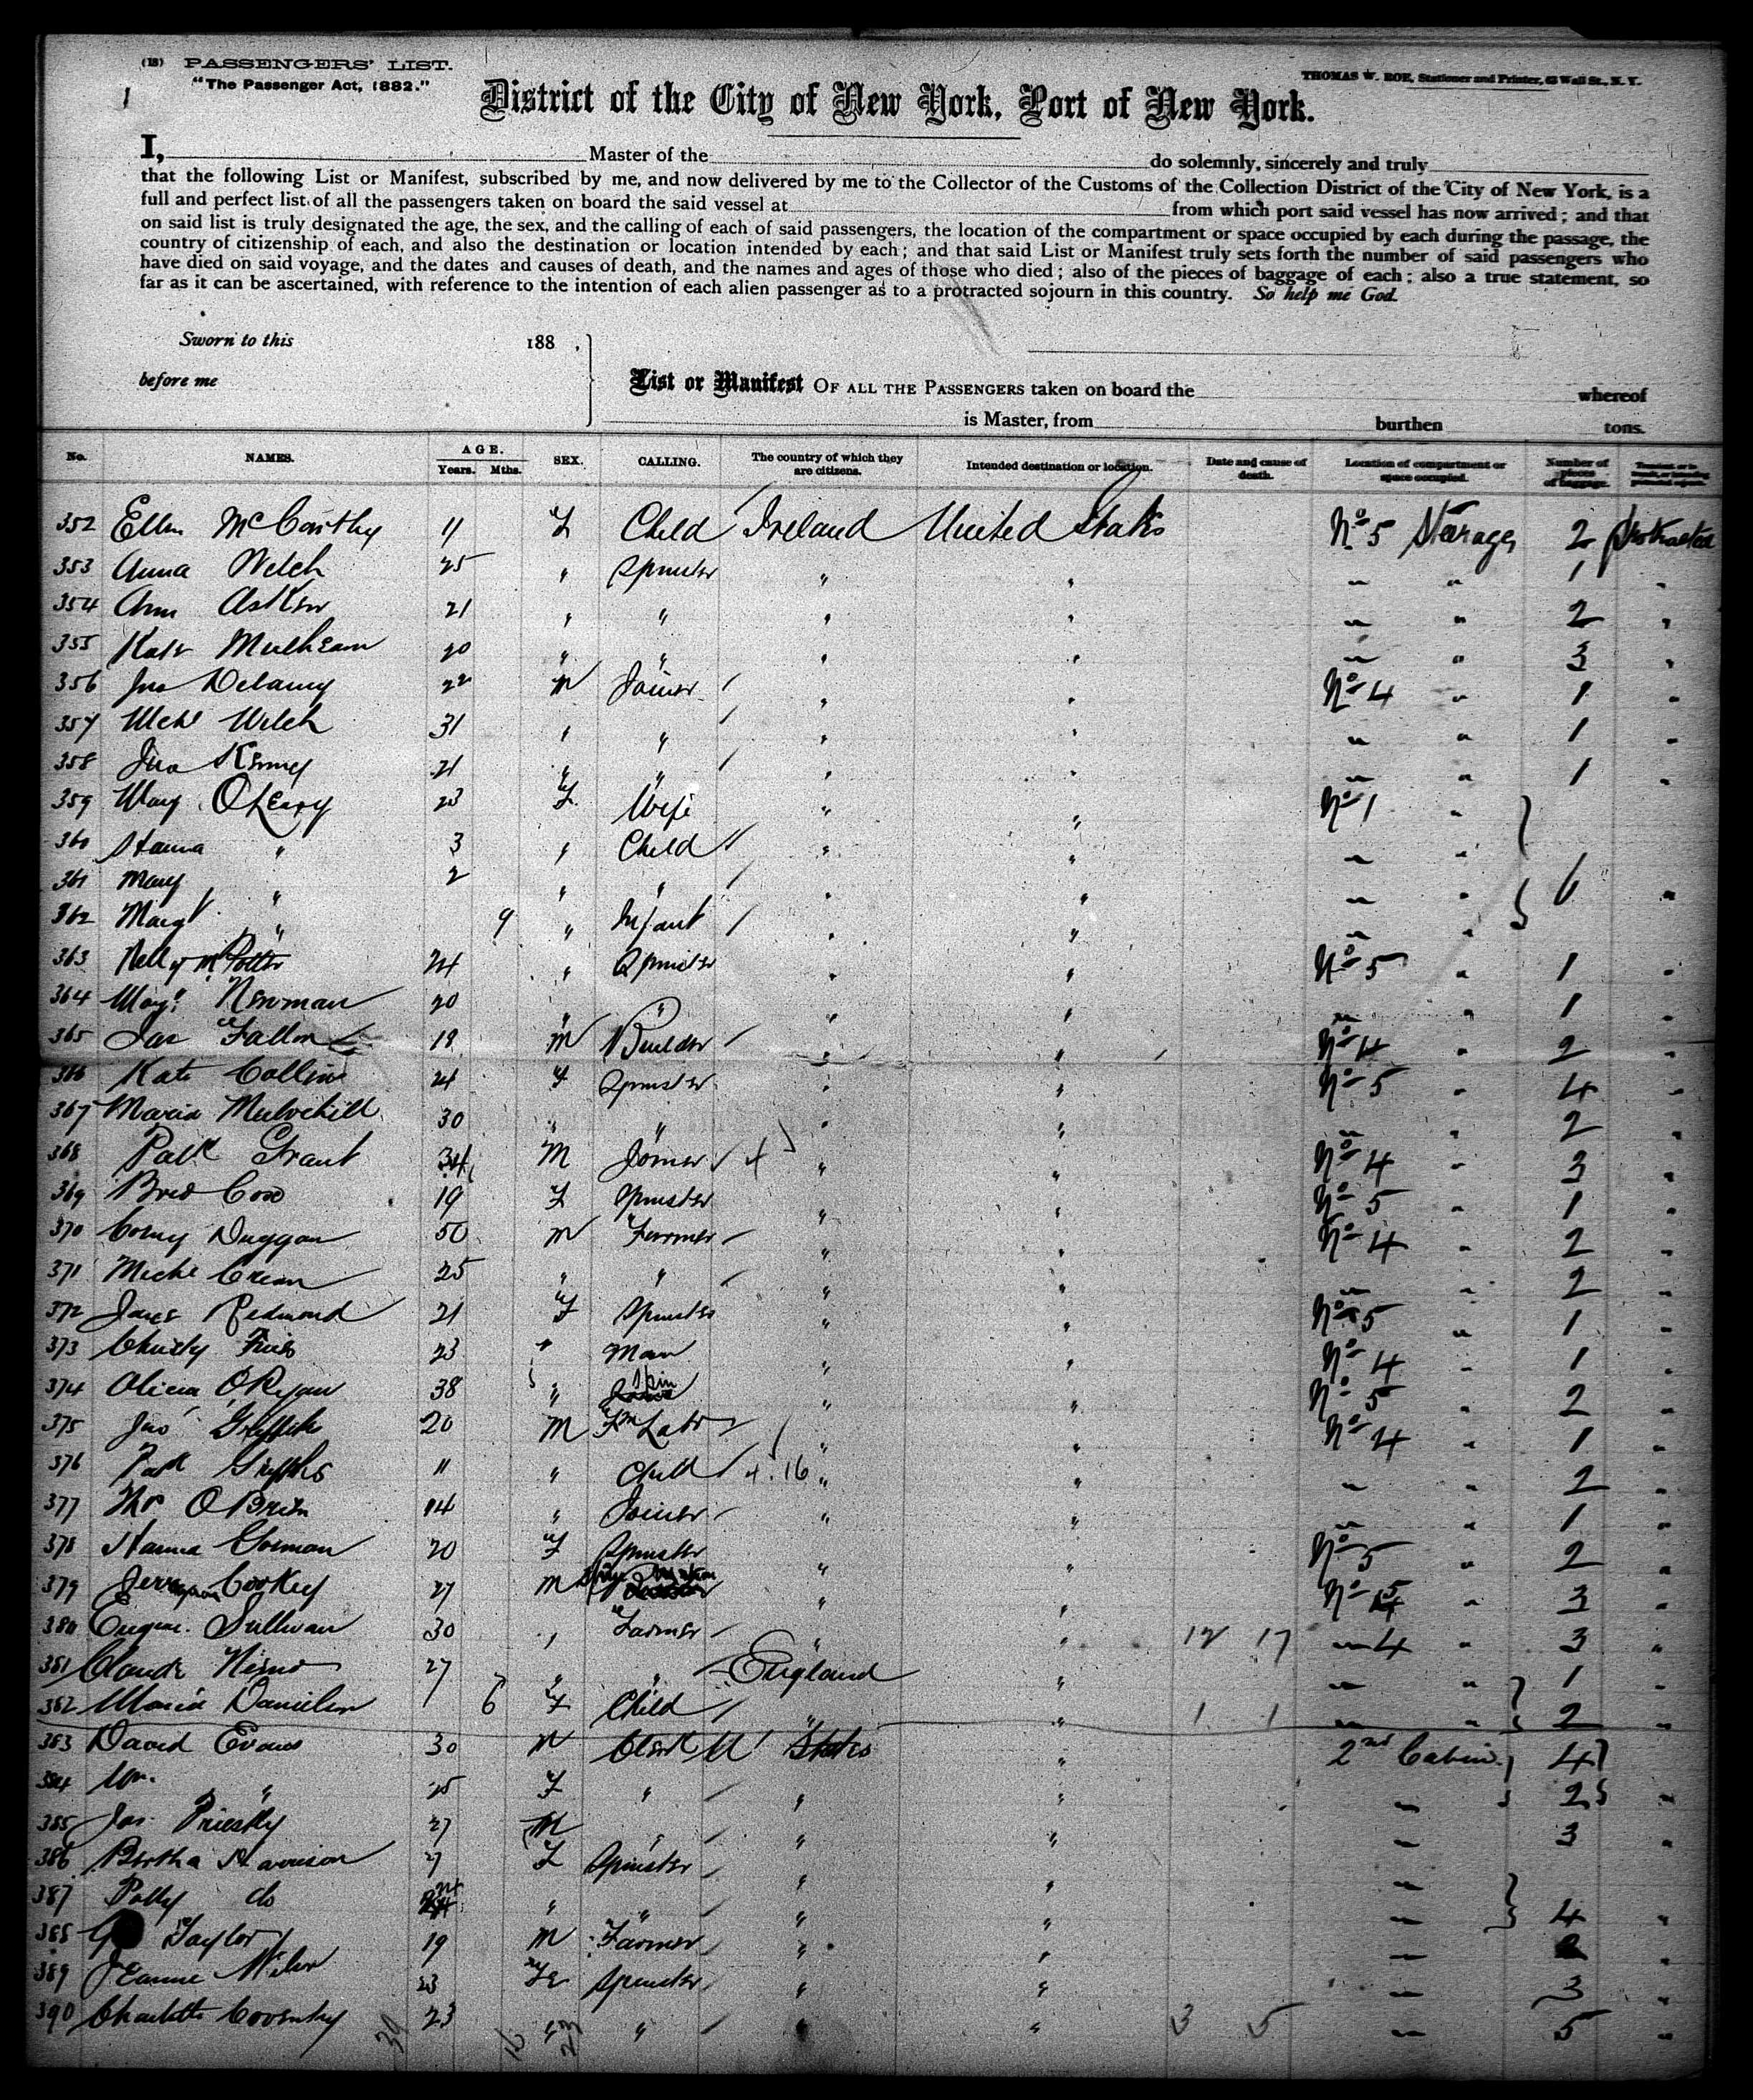 (18) PASSENGERS' LIST.
"The Passenger Act, 1882."
THOMAS W. ROE, Stationer and Printer, 63 Wall St., N. Y.
District of the City of New York, Port of New York.
I, Master of the do solemnly, sincerely and truly
that the following List or Manifest, subscribed by me, and now delivered by me to the Collector of the Customs of the Collection District of the City of New York, is a
full and perfect list of all the passengers taken on board the said vessel at from which port said vessel has now arrived; and that
on said list is truly designated the age, the sex, and the calling of each of said passengers, the location of the compartment or space occupied by each during the passage, the
country of citizenship of each, and also the destination or location intended by each; and that said List or Manifest truly sets forth the number of said passengers who
have died on said voyage, and the dates and causes of death, and the names and ages of those who died; also of the pieces of baggage of each; also a true statement, so
far as it can be ascertained, with reference to the intention of each alien passenger as to a protracted sojourn in this country. So help me God.
Sworn to this 188 ,
before me
List or Manifest OF ALL THE PASSENGERS taken on board the whereof
is Master, from burthen tons.
No. NAMES. AGE. Years. Mths. SEX. CALLING. The country of which they are citizens. Intended destination or location. Date and cause of death. Location of compartment or space occupied. Number of pieces of baggage.
352 Ellen McCarthy 11 F Child Ireland United States No 5 Steerage 2 Protracted
353 Anna Welch 25 " Spinster " " " " 1 "
354 Ann Askew 21 " " " " " " 2 "
355 Kate Mulhearn 20 " " " " " " 3 "
356 Jno Delaney 22 M Joiner " " No 4 " 1 "
357 Michl Welch 31 " " " " " " 1 "
358 Jno Kenney 21 " " " " " " 1 "
359 Mary O'Leary 23 F Wife " " No 1 "
360 Hanna " 3 " Child " " " "
361 Mary " 2 " " " " " " 6 "
362 Margt " 9 " Infant " " " "
363 Nelly 24 " Spinster " " No 5 " 1 "
364 Margt Newman 20 " " " " " " 1 "
365 Jas Fallon 19 M Builder " " No 4 " 2 "
366 Kate Collins 21 F Spinster " " No 5 " 4 "
367 Maria Mulvehill 30 " " " " " " 2 "
368 Patk Grant 34 M Joiner 4 " " No 4 " 3 "
369 Brid Cox 19 F Spinster " " No 5 " 1 "
370 Corny Duggan 50 M Farmer " " No 4 " 2 "
371 Michl Crean 25 " " " " " " 2 "
372 Jane Redmond 21 F Spinster " " No 5 " 1 "
373 Christy 23 " Man " " No 4 " 1 "
374 Alicia O'Ryan 38 " Spin " " No 5 " 2 "
375 Jno Griffith 20 M Fm Labr " " No 4 " 1 "
376 Patk Griffiths 11 " Child 4.16 " " " " 2 "
377 Thos O'Brien 14 " Joiner " " " " 1 "
378 Hanna Gorman 20 F Spinster " " No 5 " 2 "
379 Cooney 27 M " " No 5 " 3 "
380 Eugene Sullivan 30 " Farmer " " 12 17 " 4 " 3 "
381 Claude 27 " " England " " " 1 "
382 Maria Danielson 6 F Child " " 1 1 " " 2 "
383 David Evans 30 M Clerk U States " 2nd Cabin 4
384 Mrs. " 25 F " " " " 2 "
385 Jas. Priestly 27 M " " " " 3 "
386 Bertha Harrison 27 F Spinster " " "
387 Polly do 24 " " " " " 4 "
388 Taylor 19 M Farmer " " " "
389 Jeannie 23 F Spinster " " " 3 "
390 Charlotte Coventry 23 " " " " 3 5 " 5 "
39 16 23